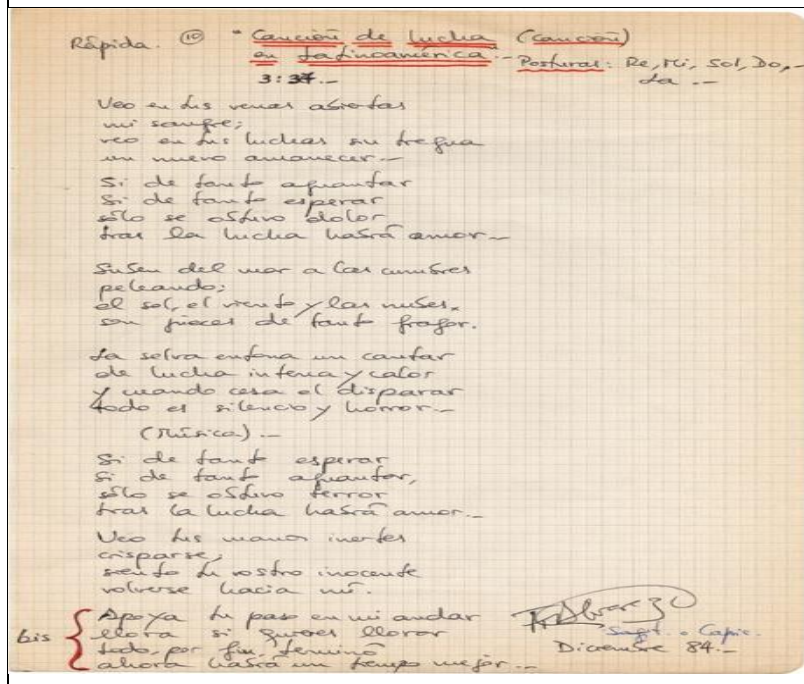 Rápida. (10) "Canción de lucha (canción)
en Latinoamérica".- Posturas: Re, Mi, Sol, Do,-
La .-
3:37.-
Veo en tus venas abiertas
mi sangre;
veo en tus luchas sin tregua
un nuevo amanecer.-
Si de tanto aguantar
Si de tanto esperar
sólo se obtuvo dolor
tras la lucha habrá amor.-
Suben del mar a las cumbres
peleando;
el sol, el viento y las nubes,
son jueces de tanto fragor.
La selva entona un cantar
de lucha intensa y calor
y cuando cesa el disparar
todo es silencio y horror.-
(Música).-
Si de tanto esperar
Si de tanto aguantar,
sólo se obtuvo terror
tras la lucha habrá amor.-
Veo tus manos inertes
crisparse,
siento tu rostro inocente
volverse hacia mí.
Apoya tu paso en mi andar
bis llora si quieres llorar
todo, por fin, terminó
ahora habrá un tiempo mejor.-
Diciembre 84.-